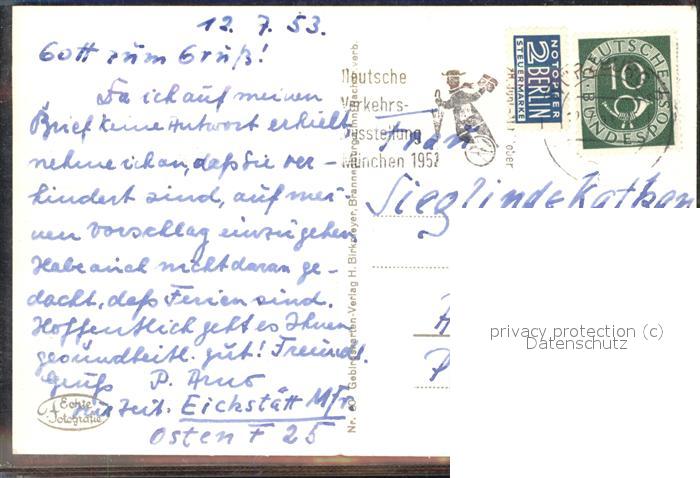 12. 7. 53.
Gott zum Gruß!
Da ich auf meinen
Brief keine Antwort erhielt,
nehme ich an, daß Sie ver-
hindert sind, auf mei-
nen Vorschlag einzugehen
Habe auch nicht daran ge-
dacht, daß Ferien sind.
Hoffentlich geht es Ihnen
gesundheitl. gut! Freundl.
Gruß P. Arno
zur Zeit. Eichstätt Mfr.
Osten F 25
Echte
Fotografie
Gebirgskarten-Verlag H. Birkmeyer, Brannenburg a. Inn
Deutsche
Verkehrs-
Ausstellung
München 1953
NOTOPFER
2 BERLIN
STEUERMARKE
DEUTSCHE
10
BUNDESPOST
Frau
Sieglinde
privacy protection (c)
Datenschutz